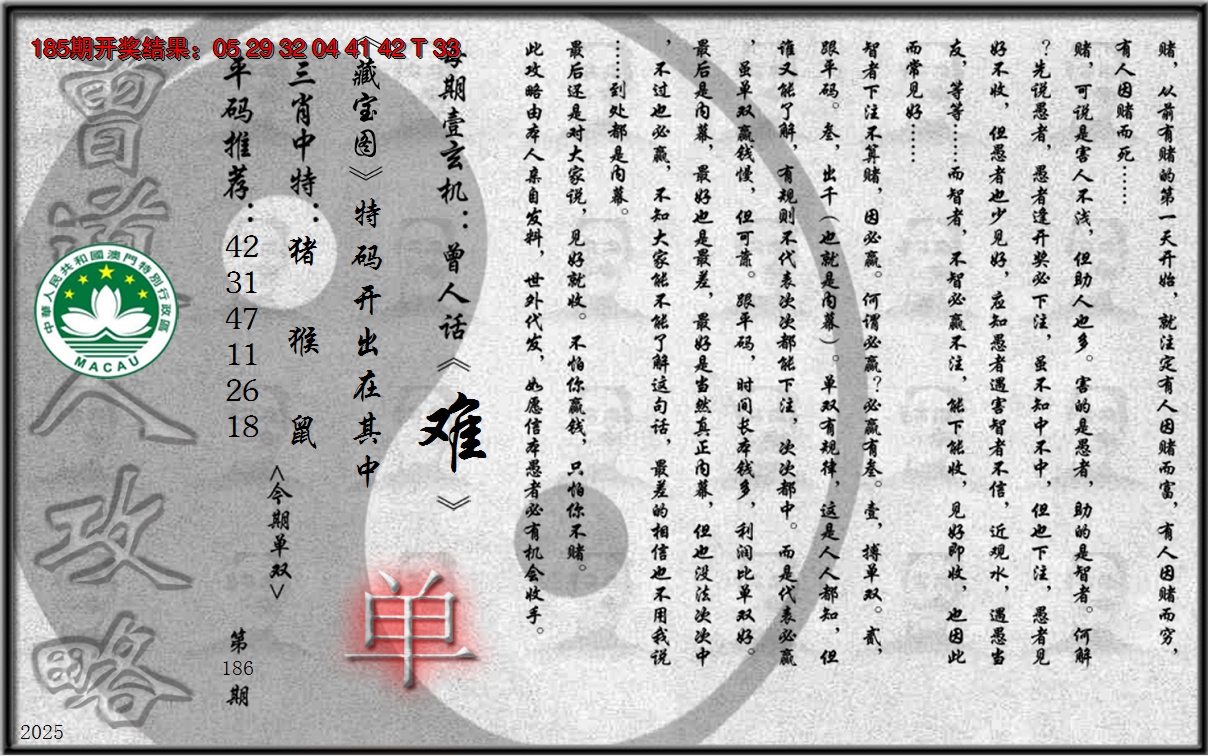 185期开奖结果：05 29 32 04 41 42 T 33
赌，从前有赌的第一天开始，就注定有人因赌而富，有人因赌而穷，
有人因赌而死……
赌，可说是害人不浅，但助人也多。害的是愚者，助的是智者。何解
？先说愚者，愚者逢开奖必下注，虽不知中不中，但也下注，愚者见
好不收，但愚者也少见好，应知愚者遇害智者不信，近观水，遇愚当
友，等等……而智者，不智必赢不注，能下能收，见好即收，也因此
而常见好……
智者下注不算赌，因必赢。何谓必赢？必赢有叁。壹，搏单双。贰，
跟平码。叁，出千（也就是内幕）。单双有规律，这是人人都知，但
谁又能了解，有规则不代表次次都能下注，次次都中。而是代表必赢
，虽单双赢钱慢，但可靠。跟平码，时间长本钱多，利润比单双好。
最后是内幕，最好也是最差，最好是当然真正内幕，但也没法次次中
，不过也必赢，不知大家能不能了解这句话，最差的相信也不用我说
……到处都是内幕。
最后还是对大家说，见好就收。不怕你赢钱，只怕你不赌。
此攻略由本人亲自发料，世外代发，如愿信本愚者必有机会收手。
每期壹玄机：曾人话《难》
《藏宝图》特码开出在其中
单
三肖中特：猪 猴 鼠
<今期单双>
平码推荐：42 31 47 11 26 18
第186期
曾道人攻略
中華人民共和國澳門特別行政區
MACAU
2025